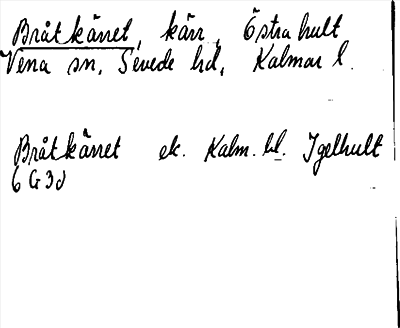 Bråtkärret, kärr, Östra hult
Vena sn, Sevede hd, Kalmar l.
Bråtkärret ek. Kalm. bl. Igelhult
6G3d